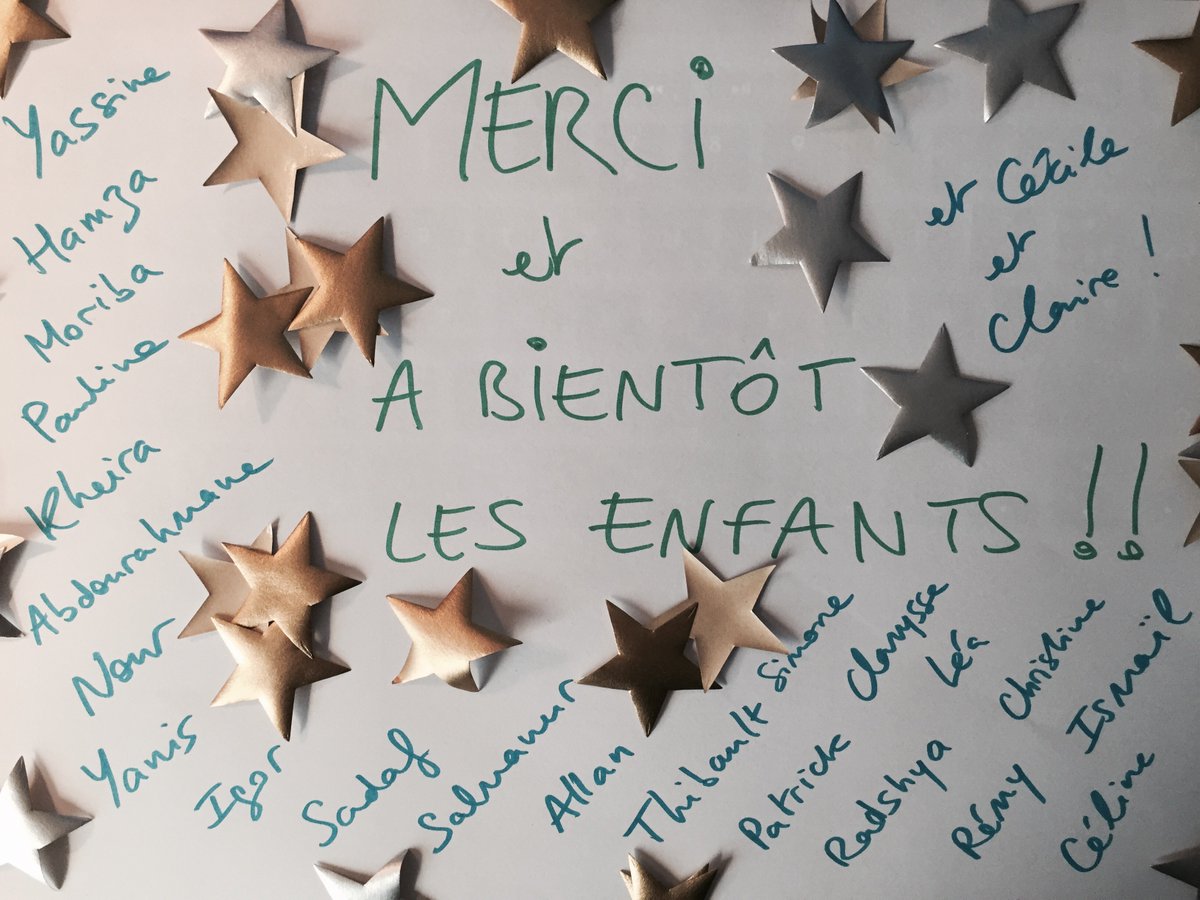 MERCi
et
A BiENTÔT
LES ENFANTS !!
et Cécile
et
Claire !
Yassine
Hamza
Moriba
Pauline
Kheira
Abdourahmane
Nour
Yanis
Igor
Sadaf
Salmanur
Allan
Thibault Simone
Patrick Clarysse
Radshya Léa
Rémy Christine
Céline Ismaïl